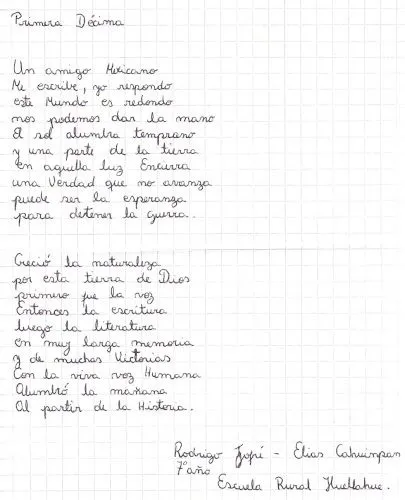 Primera Décima
Un amigo Mexicano
Me escribe, yo respondo
este Mundo es redondo
nos podemos dar la mano
El sol alumbra temprano
y una parte de la tierra
en aquella luz Encierra
una Verdad que no avanza
puede ser la esperanza
para detener la guerra.
Creció la naturaleza
por esta tierra de Dios
primero fue la voz
Entonces la escritura
luego la literatura
en muy larga memoria
y de muchas Victorias
Con la viva voz Humana
Alumbró la mañana
Al partir de la Historia.
Rodrigo - Elias Cahuinpan
7°año
Escuela Rural Huellahue.